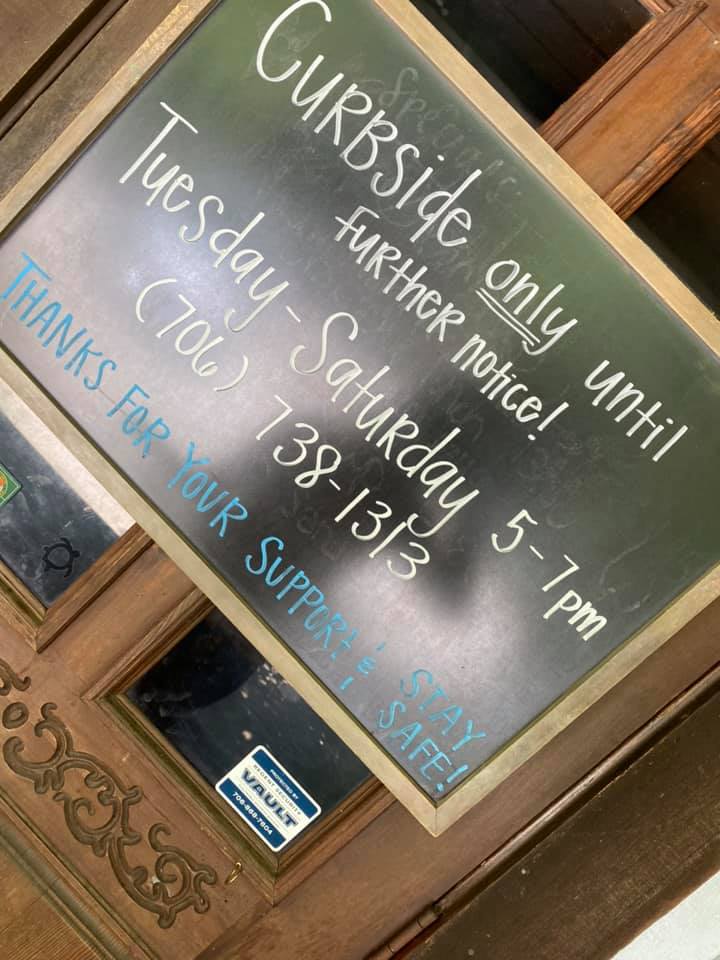 Curbside only until
further notice!
Tuesday-Saturday 5-7pm
(706) 738-1313
THANKS FOR YOUR SUPPORT & STAY
SAFE!
PROTECTED BY
VAULT
706-868-7604